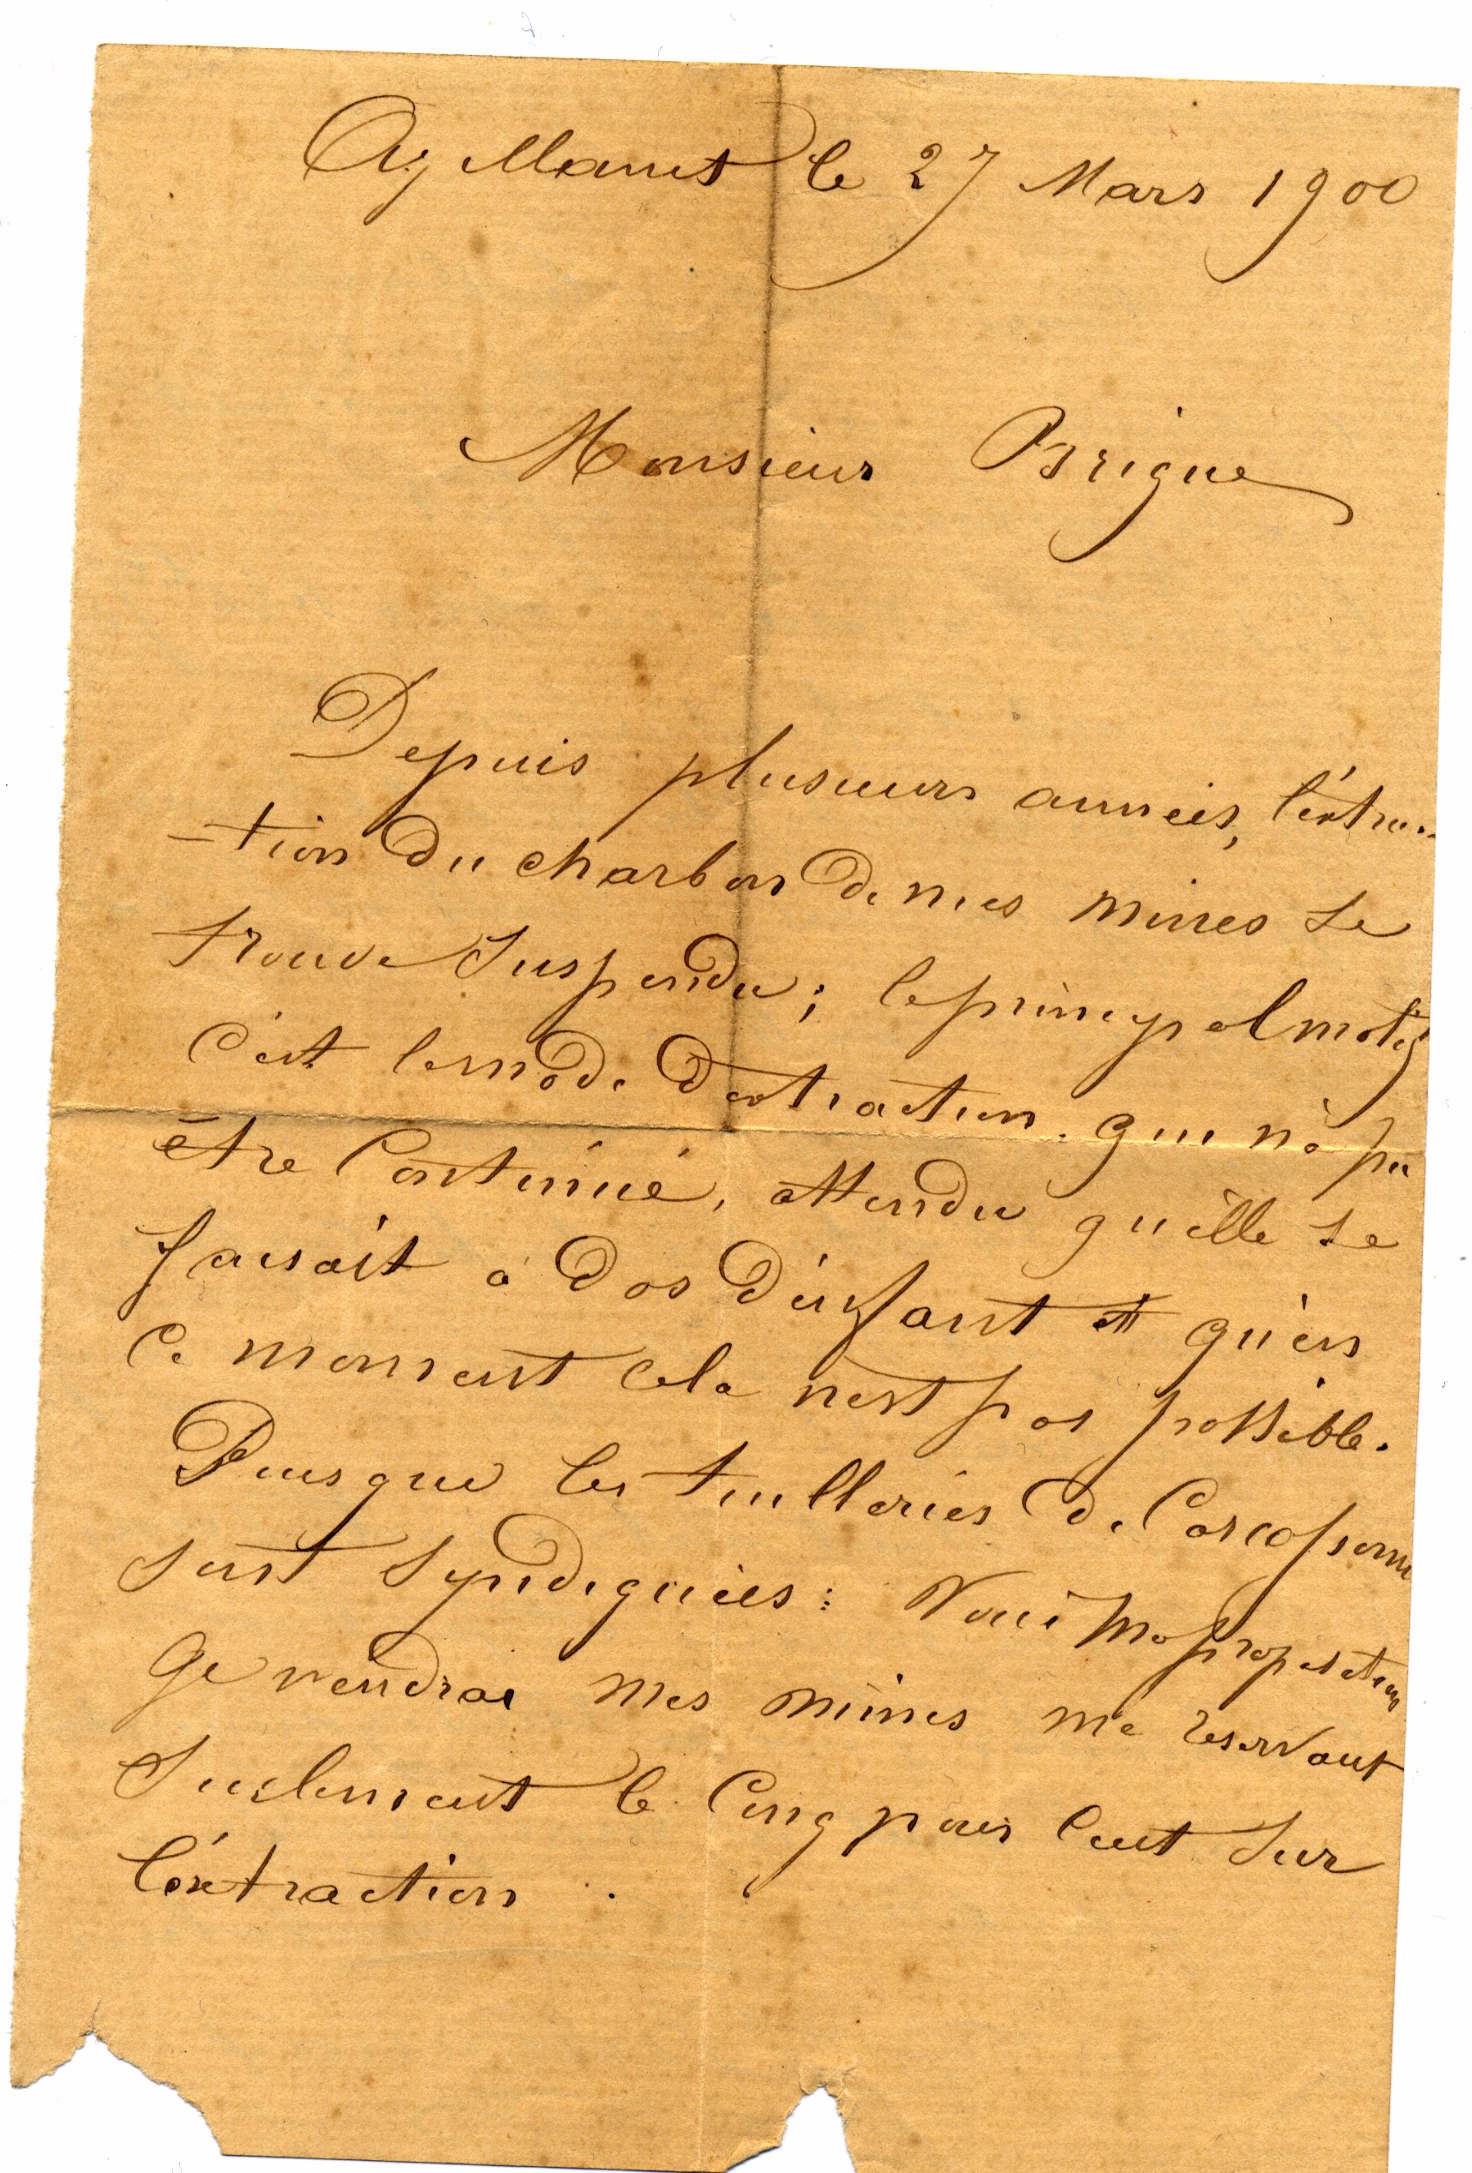 le 27 Mars 1900
Monsieur Brigue
Depuis plusieurs années, l'extrac-
-tion du charbon de mes mines se
trouve suspendu ; le principal motif
c'est le mode d'extraction qui n'a pu
être continué, attendu qu'elle se
faisait à dos d'enfant et qu'en
ce moment cela n'est pas possible.
Puisque les tuilleries de Carcassonne
sont syndiquées : Voici ma proposition
Je vendrai mes mines me reservant
seulement le cinq pour cent sur
l'extraction .